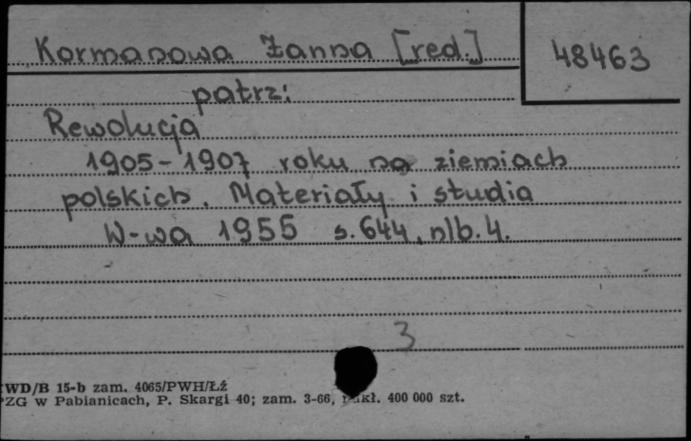 Kormanowa Żanna [red.]
48463
patrz:
Rewolucja
1905-1907 roku na ziemiach
polskich. Materiały i studia
W-wa 1955 s. 644, nlb. 4.
3
WD/B 15-b zam. 4065/PWH/Łź
PZG w Pabianicach, P. Skargi 40; zam. 3-66, nakł. 400 000 szt.